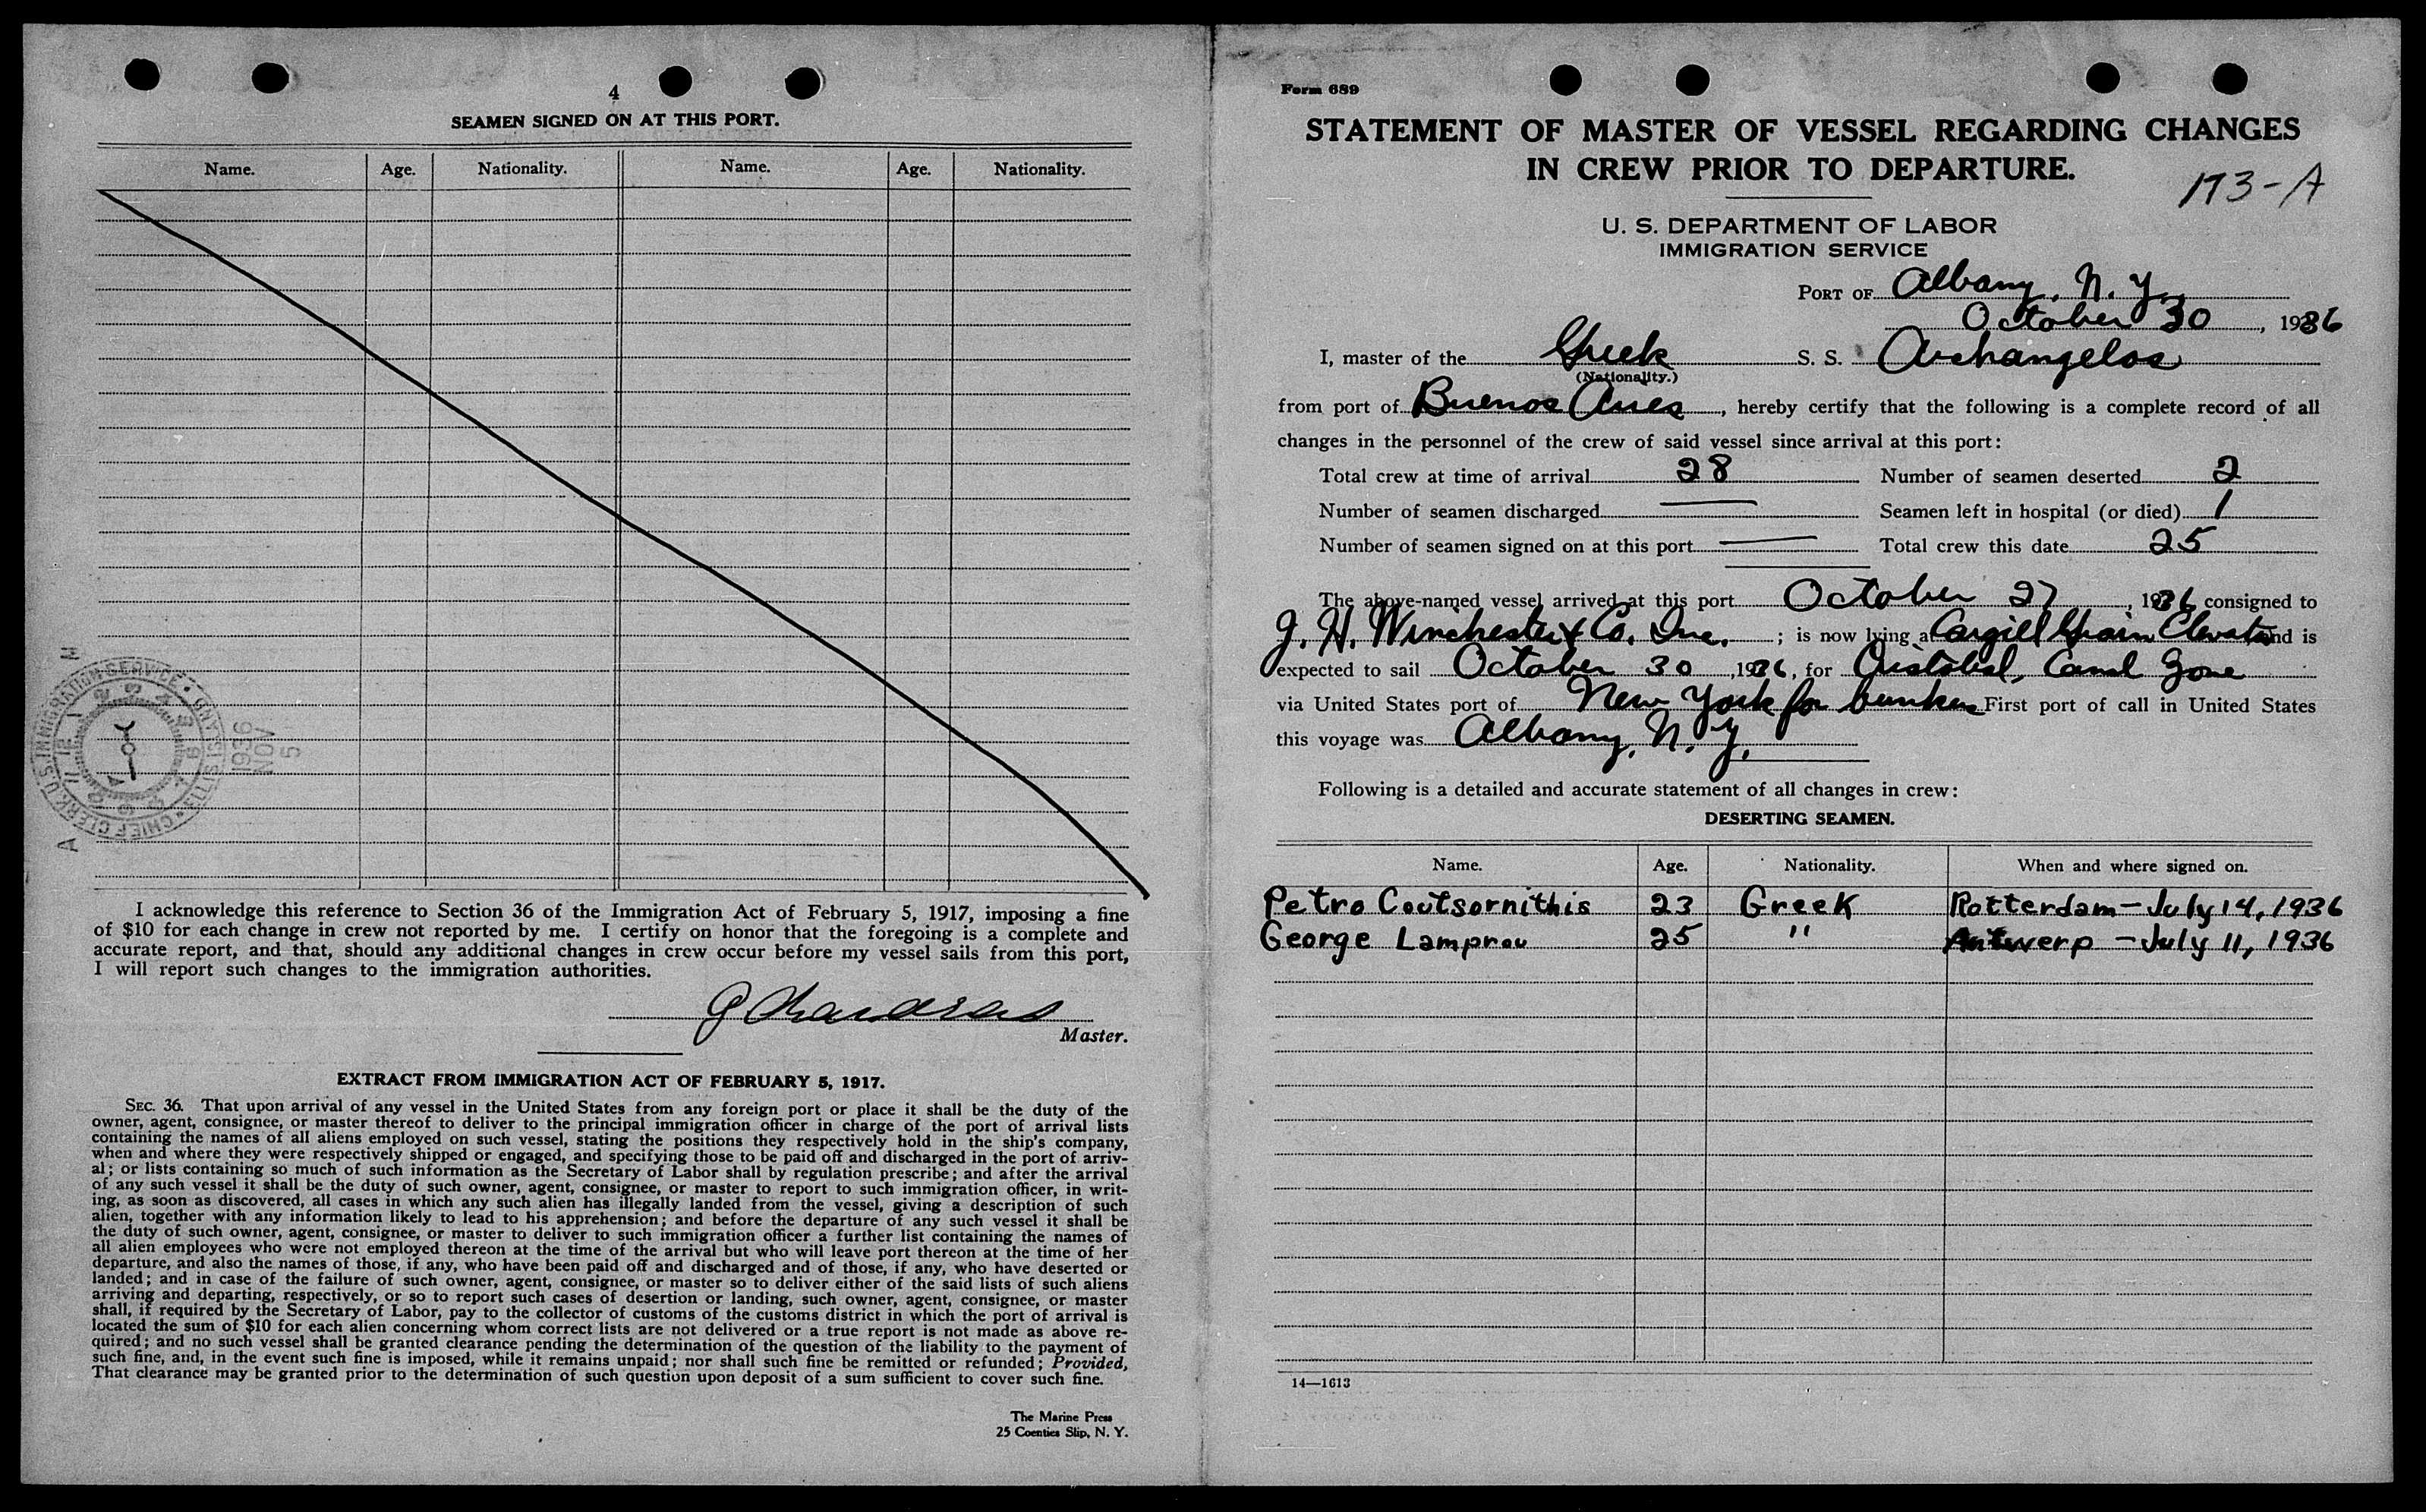 4
SEAMEN SIGNED ON AT THIS PORT.
Name. Age. Nationality. Name. Age. Nationality.
I acknowledge this reference to Section 36 of the Immigration Act of February 5, 1917, imposing a fine
of $10 for each change in crew not reported by me. I certify on honor that the foregoing is a complete and
accurate report, and that, should any additional changes in crew occur before my vessel sails from this port,
I will report such changes to the immigration authorities.
Master.
EXTRACT FROM IMMIGRATION ACT OF FEBRUARY 5, 1917.
SEC. 36. That upon arrival of any vessel in the United States from any foreign port or place it shall be the duty of the
owner, agent, consignee, or master thereof to deliver to the principal immigration officer in charge of the port of arrival lists
containing the names of all aliens employed on such vessel, stating the positions they respectively hold in the ship's company,
when and where they were respectively shipped or engaged, and specifying those to be paid off and discharged in the port of arriv-
al; or lists containing so much of such information as the Secretary of Labor shall by regulation prescribe; and after the arrival
of any such vessel it shall be the duty of such owner, agent, consignee, or master to report to such immigration officer, in writ-
ing, as soon as discovered, all cases in which any such alien has illegally landed from the vessel, giving a description of such
alien, together with any information likely to lead to his apprehension; and before the departure of any such vessel it shall be
the duty of such owner, agent, consignee, or master to deliver to such immigration officer a further list containing the names of
all alien employees who were not employed thereon at the time of the arrival but who will leave port thereon at the time of her
departure, and also the names of those, if any, who have been paid off and discharged and of those, if any, who have deserted or
landed; and in case of the failure of such owner, agent, consignee, or master so to deliver either of the said lists of such aliens
arriving and departing, respectively, or so to report such cases of desertion or landing, such owner, agent, consignee, or master
shall, if required by the Secretary of Labor, pay to the collector of customs of the customs district in which the port of arrival is
located the sum of $10 for each alien concerning whom correct lists are not delivered or a true report is not made as above re-
quired; and no such vessel shall be granted clearance pending the determination of the question of the liability to the payment of
such fine, and, in the event such fine is imposed, while it remains unpaid; nor shall such fine be remitted or refunded; Provided,
That clearance may be granted prior to the determination of such question upon deposit of a sum sufficient to cover such fine.
The Marine Press
25 Coenties Slip, N. Y.
CHIEF CLERK U.S. IMMIGRATION SERVICE • ELLIS ISLAND •
1936
NOV
5
Form 689
STATEMENT OF MASTER OF VESSEL REGARDING CHANGES
IN CREW PRIOR TO DEPARTURE.
173-A
U. S. DEPARTMENT OF LABOR
IMMIGRATION SERVICE
PORT OF Albany, N. Y.
October 30, 1936
I, master of the Greek S. S. Archangelos
(Nationality.)
from port of Buenos Aires, hereby certify that the following is a complete record of all
changes in the personnel of the crew of said vessel since arrival at this port:
Total crew at time of arrival 28 Number of seamen deserted 2
Number of seamen discharged — Seamen left in hospital (or died) 1
Number of seamen signed on at this port — Total crew this date 25
The above-named vessel arrived at this port October 27, 1936 consigned to
J. H. Winchester & Co. Inc. ; is now lying at Cargill Grain Elevator and is
expected to sail October 30, 1936, for Cristobal, Canal Zone
via United States port of New York for bunkers First port of call in United States
this voyage was Albany, N. Y.
Following is a detailed and accurate statement of all changes in crew:
DESERTING SEAMEN.
Name. Age. Nationality. When and where signed on.
Petro Coutsornithis 23 Greek Rotterdam - July 14, 1936
George Lamprou 25 " Antwerp - July 11, 1936
14—1613